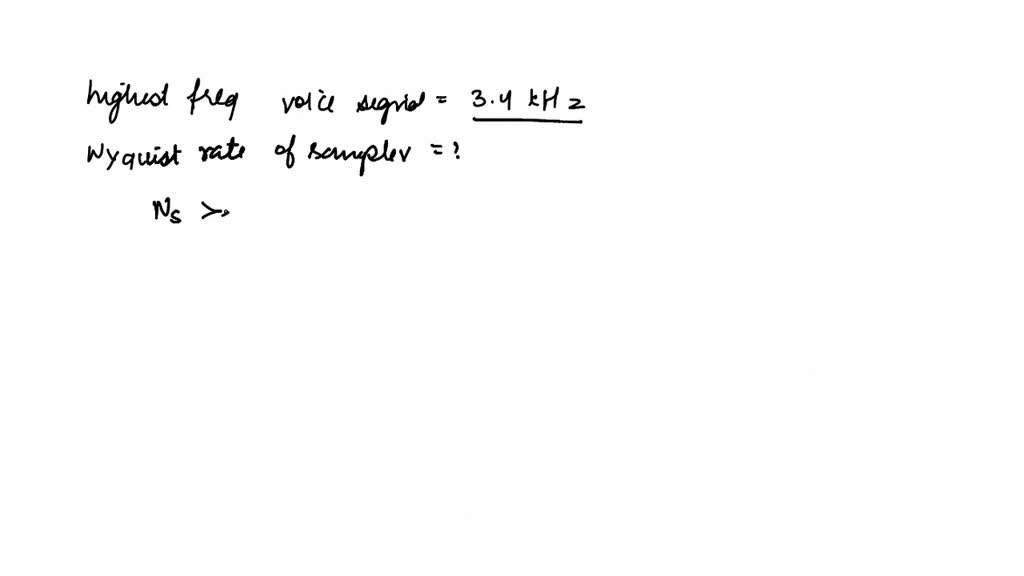 highest freq voice signal = 3.4 kHz
Nyquist rate of sampler = ?
Ns >